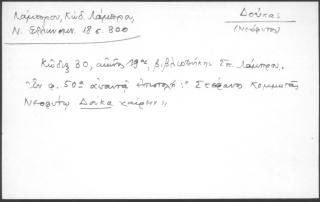 Λάμπρου, Κώδ. Λάμπρου,
Ν. Ελληνομν. 18 σ. 300
Δούκας
(Νεόφυτος)
Κῶδιξ 30, αἰῶνος 19ου, βιβλιοθήκης Σπ. Λάμπρου.
Ἐν φ. 50α ἐπιστολή: "Στέφανος Κομμητᾶς
Νεοφύτῳ Δούκα χαίρειν"